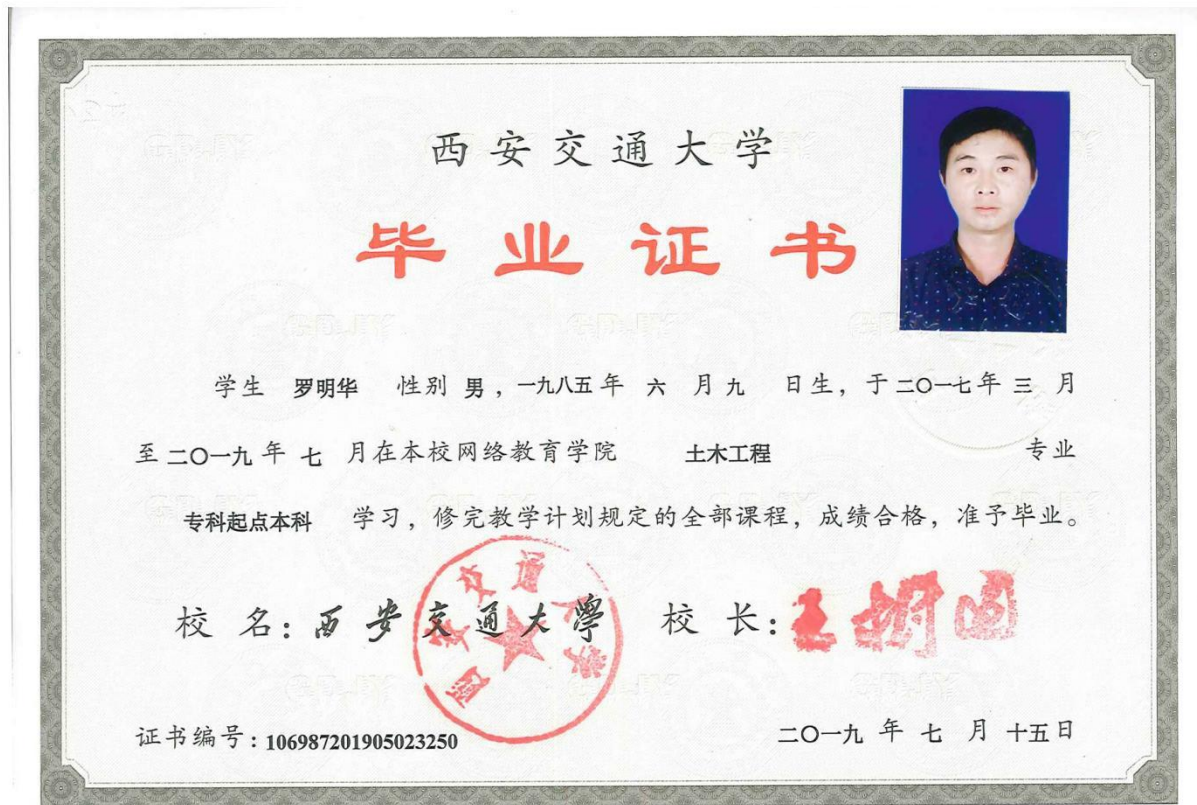 西安交通大学
毕业证书
学生 罗明华 性别 男，一九八五年 六 月 九 日生，于二〇一七年 三 月
至二〇一九年 七 月在本校网络教育学院 土木工程 专业
专科起点本科 学习，修完教学计划规定的全部课程，成绩合格，准予毕业。
校 名：西安交通大學 校 长：王树国
西安交通大学
证书编号：106987201905023250 二〇一九 年 七 月 十五日